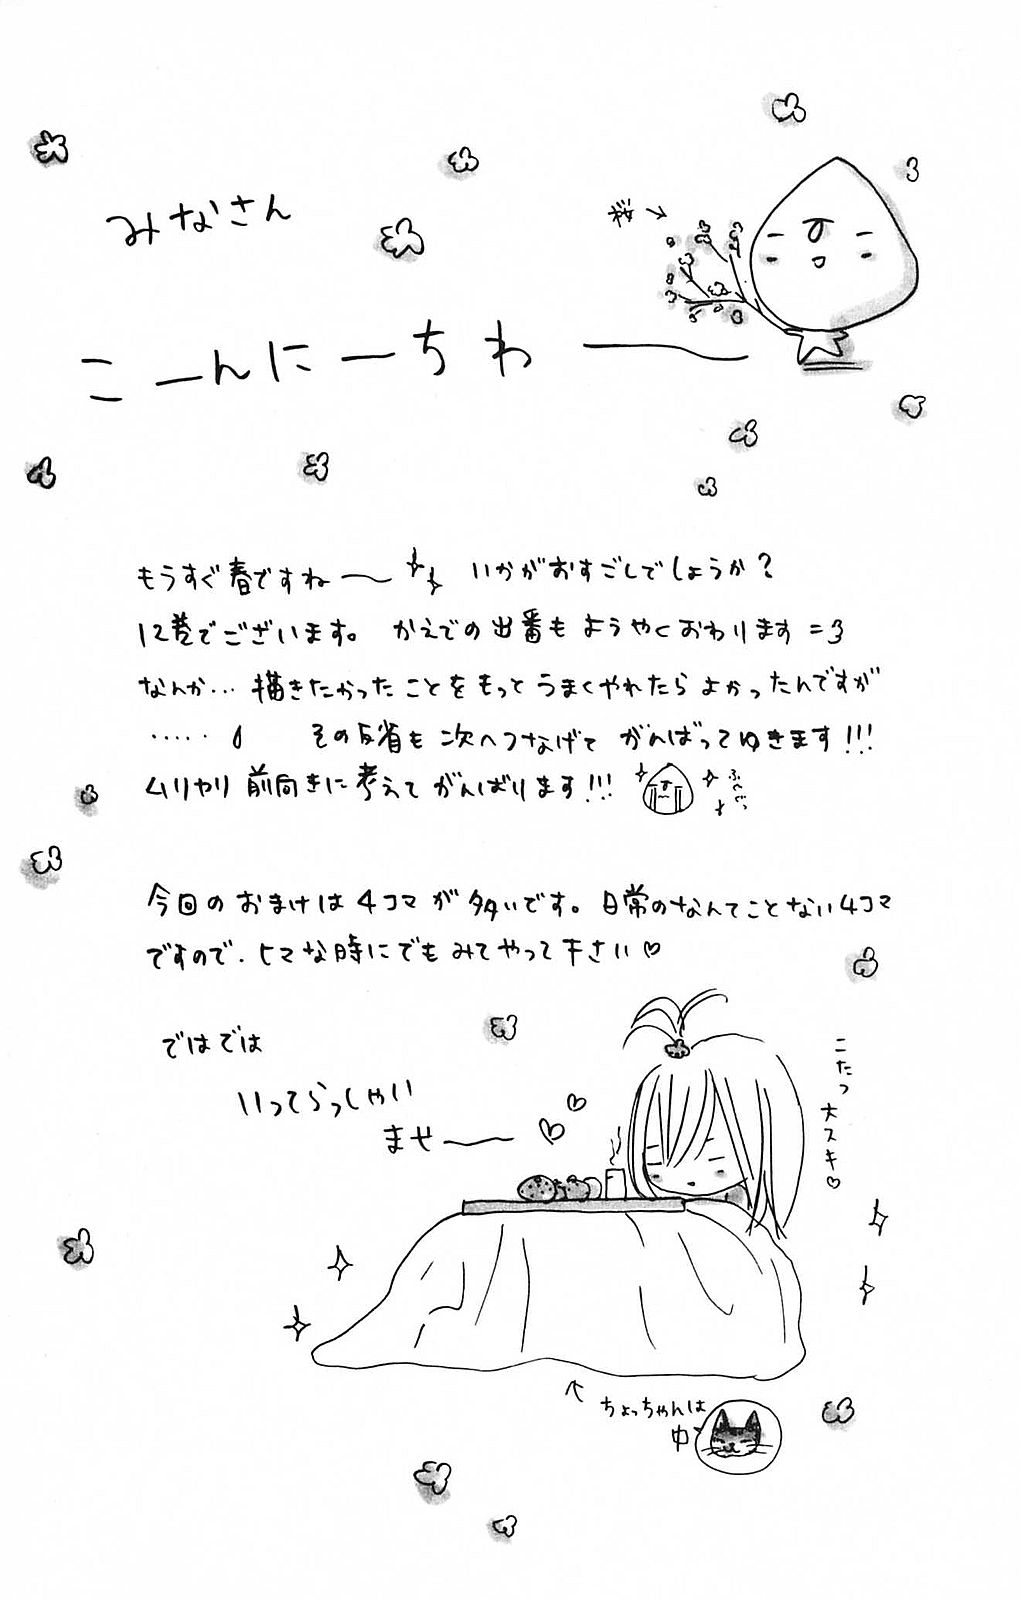 みなさん
桜→
こーんにーちわー
もうすぐ春ですねー いかがおすごしでしょうか?
12巻でございます。 かえでの出番もようやくおわります=3
なんか… 描きたかったことをもっとうまくやれたらよかったんですが
‥‥‥ その反省も次へつなげてがんばってゆきます!!!
ムリヤリ前向きに考えてがんばります!!!
今回のおまけは4コマが多いです。日常のなんてことない4コマ
ですので、ヒマな時にでもみてやって下さい♡
ではでは
いってらっしゃい
ませー
こたつ
大スキ♡
ちょっちゃんは
中